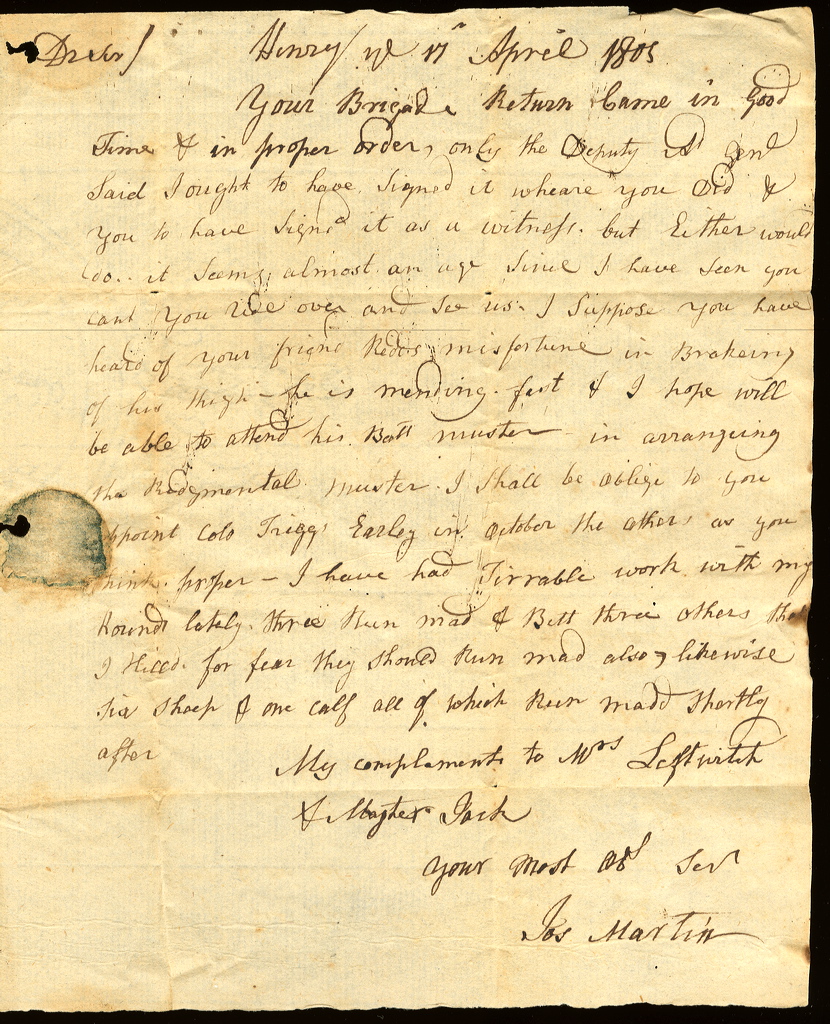 Dr Sir / Henry / ye 17th April 1805
Your Brigade Return Came in Good
Time & in proper order, only the Deputy At Genl
Said I ought to have Signed it wheare you Did &
you to have Signd it as a witness. but Either would
do.. it Seems almost an age Since I have Seen you
cant you Ride over and See us. I Suppose you have
heard of your friend misfortune in Brakeing
of his thigh - he is mending fast & I hope will
be able to attend his Batt muster in arrangeing
the Redgmental muster I Shall be oblige to you
appoint Colo Triggs Earley in October the others as you
think proper - I have had Tirrable work with my
Hounds lately. three Run mad & Bitt three others that
I Killed for fear they Should Run mad also, likewise
Six Sheep & one calf all of which Run madd Shortly
after
My complements to Mrs Leftwitch
& Master Jack
Your most Obt Servt
Jos Martin